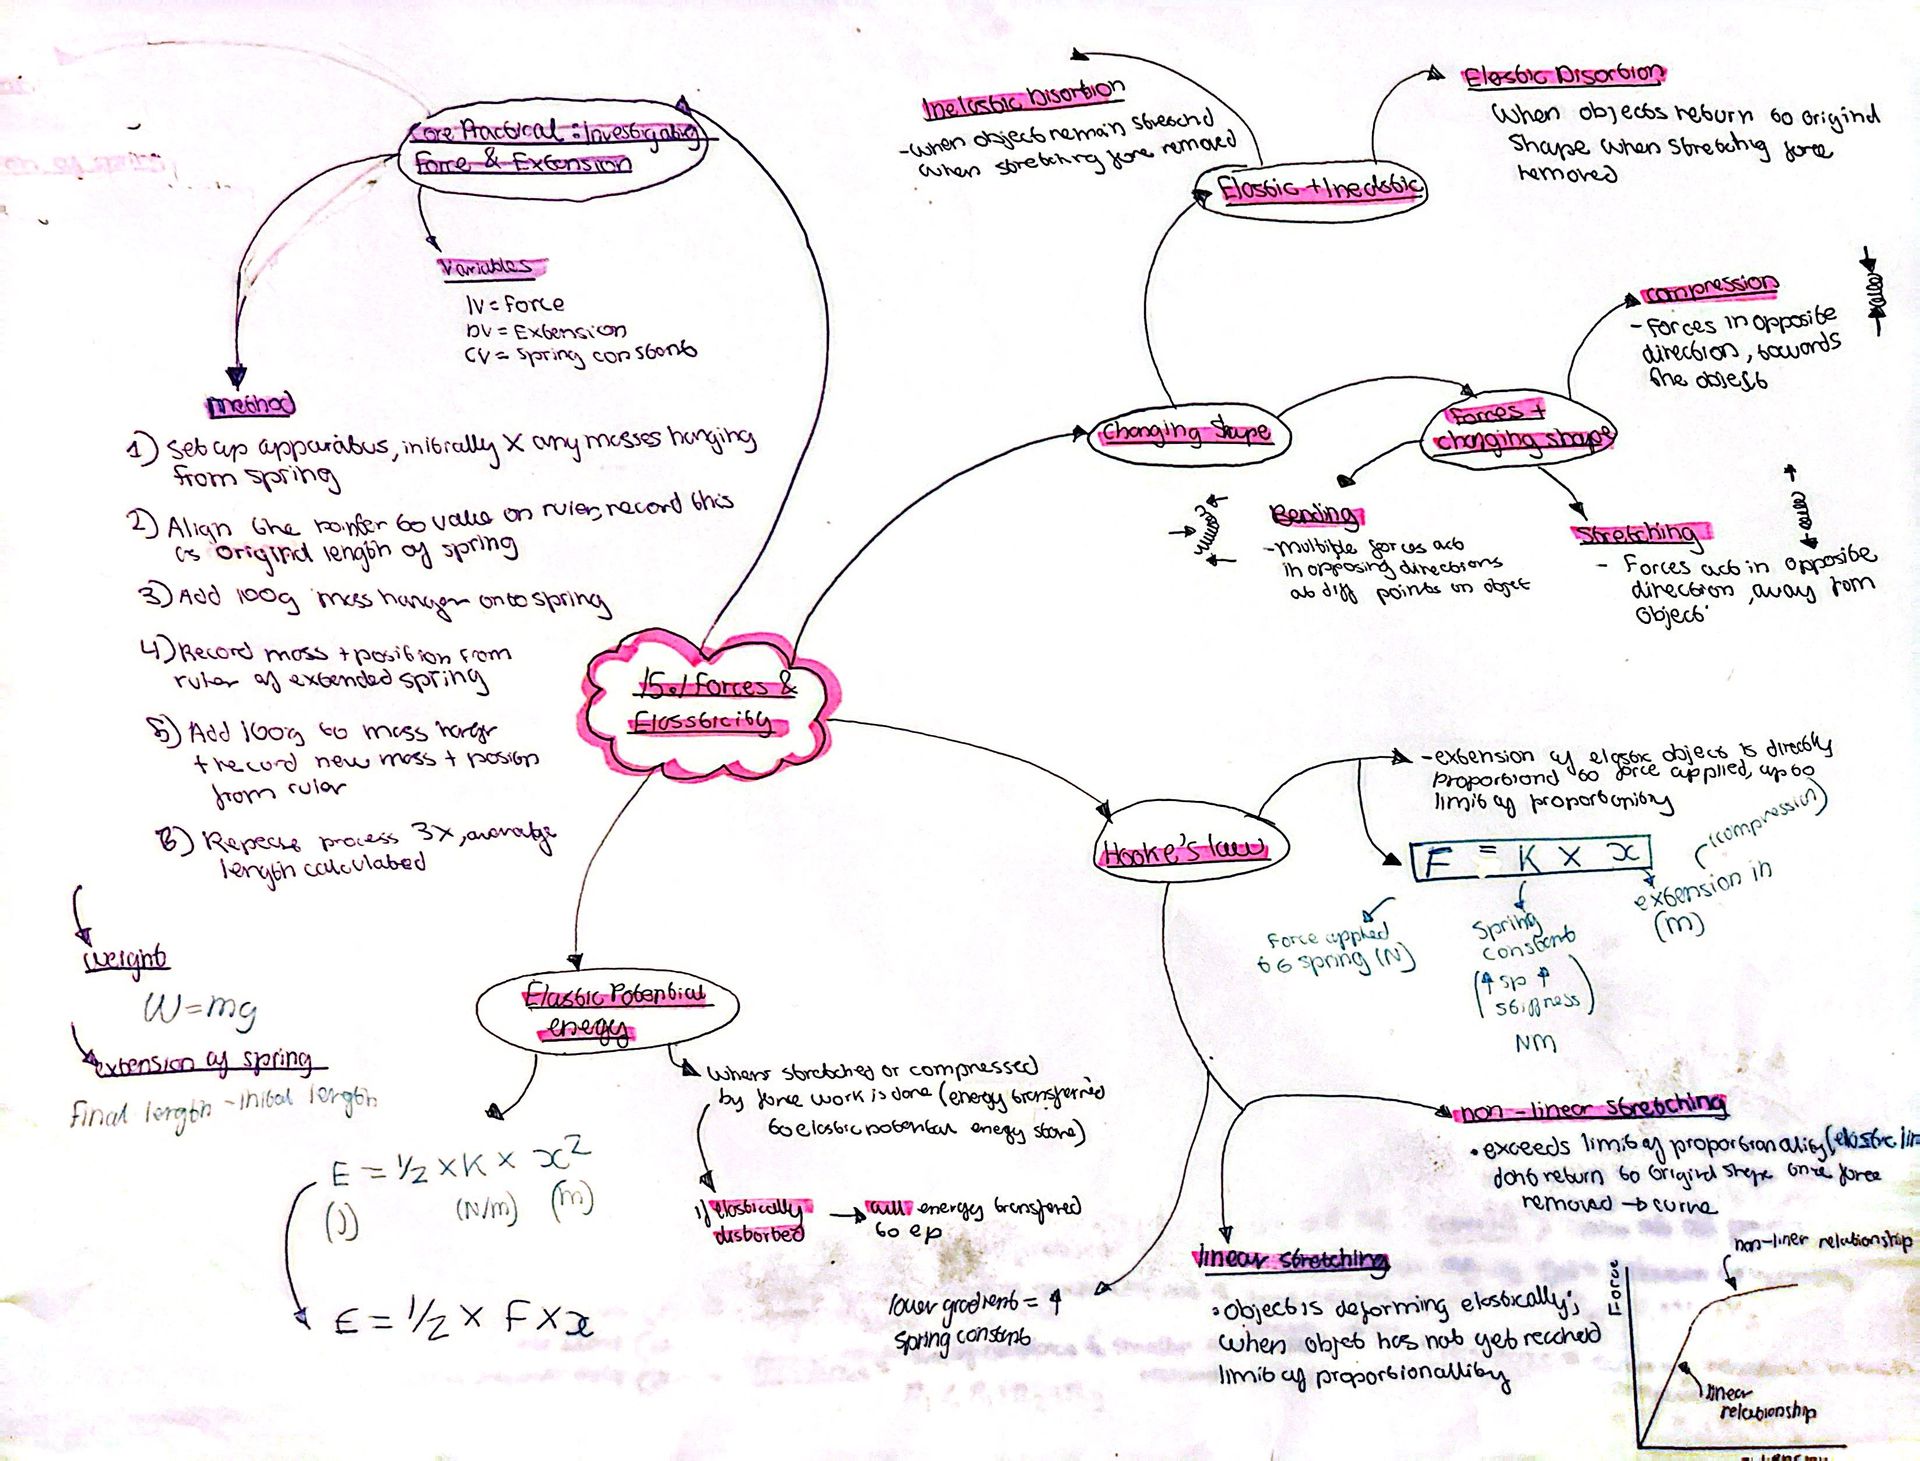 Core Practical : Investigating
Force & Extension
Variables
IV = Force
DV = Extension
CV = Spring constant
method
1) Set up apparatus, initially X any masses hanging
from spring
2) Align the pointer to value on ruler, record this
as original length of spring
3) Add 100g mass hanger onto spring
4) Record mass + position from
ruler of extended spring
5) Add 100g to mass hangr
+ record new mass + posign
from ruler
6) Repease process 3x, average
length calculated
weight
W = mg
extension of spring
Final length - inital length
15.1 Forces &
Elasticity
Inelastic Disortion
- when object remain stretchd
when stretching force removed
Elastic Disortion
When objects return to original
shape when stretching force
removed
Elastic + Inelastic
Changing Shape
Forces +
changing shape
compression
- Forces in opposite
direction, towards
the object
Bending
- multiple forces act
in opposing directions
at diff points on object
Stretching
- Forces act in opposite
direction, away from
object
Hooke's law
- extension of elastic object is directly
proportional to force applied, up to
limit of proportionity
F = K X x
(compression)
extension in
(m)
Force applied
to spring (N)
Spring
constant
(↑ sp ↑
stiffness)
NM
non-linear stretching
• exceeds limit of proportionality (elastic lim
dont return to original shape once force
removed → curve
linear stretching
• object is deforming elastically;
when objet has not yet reached
limit of proportionallity
lower gradient = ↑
spring constant
non-liner relationship
Force
linear
relationship
Elastic Potential
energy
When stretched or compressed
by force work is done (energy transferred
to elastic potental energy store)
if elastically
distorted → all energy transfered
to ep
E = 1/2 x K x x²
(J) (N/m) (m)
E = 1/2 x F x x